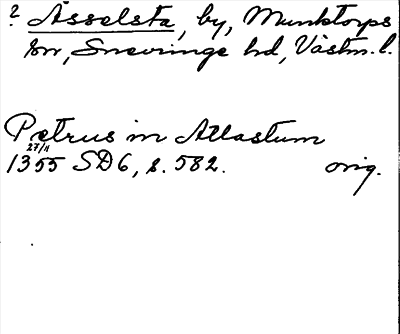 ? Åsselsta, by, Munktorps
sn, Snevringe hd, Västm. l.
Petrus in Allastum
27/11
1355 SD6, s. 582. orig.